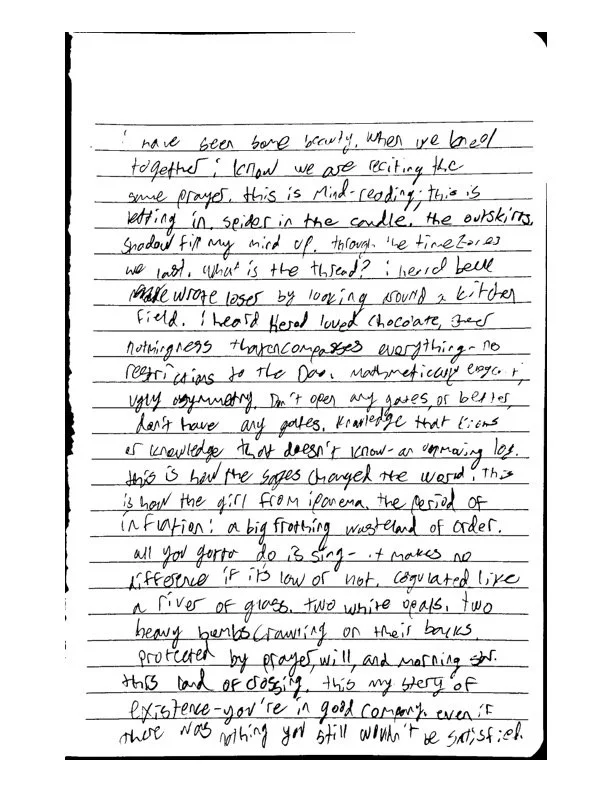 i have been some beauty. When we kneel
together i know we are reciting the
same prayer. this is Mind-reading; this is
letting in. Spider in the candle. the outskirts,
Shadow fill my mind up. through the timezones
we last. What is the thread? i heard
wrote loser by looking around a kitchen
field. i heard loved chocolate,
nothingness that encompasses everything- no
restrictions to the Dao. mathematically
ugly asymmetry. Don't open any gates, or better,
don't have any gates. Knowledge that
or knowledge that doesn't know-an unmoving log.
this is how the sages changed the world. This
is how the girl from ipanema. the period of
inflation: a big frothing wasteland of order.
all you gotta do is sing- it makes no
difference if it's low or not. cogulated like
a river of glass. two white opals. two
heavy bumbs crawling on their backs.
protected by prayer, will, and morning
this land of crossing. this my story of
existence-you're in good company. even if
there was nothing you still wouldn't be satisfied.